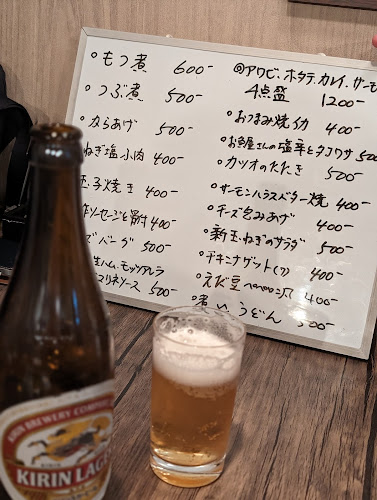 もつ煮 600-
つぶ煮 500-
からあげ 500-
ねぎ塩 小肉 400-
玉子焼き 400-
ソーセージと 400-
バーグ 500-
生ハム、モッツアレラ
ソース 500-
◎アワビ、ホタテ、カレイ、サーモ
4点盛 1200-
おつまみ焼イカ 400-
お魚屋さんの塩辛とタコワサ 500
カツオのたたき 500-
サーモンハラスバター焼 400-
チーズ包みあげ 400-
新玉ねぎのサラダ 500-
チキンナゲット(7) 400-
えだ豆 400-
うどん 500-
KIRIN BREWERY COMPANY
KIRIN LAGE